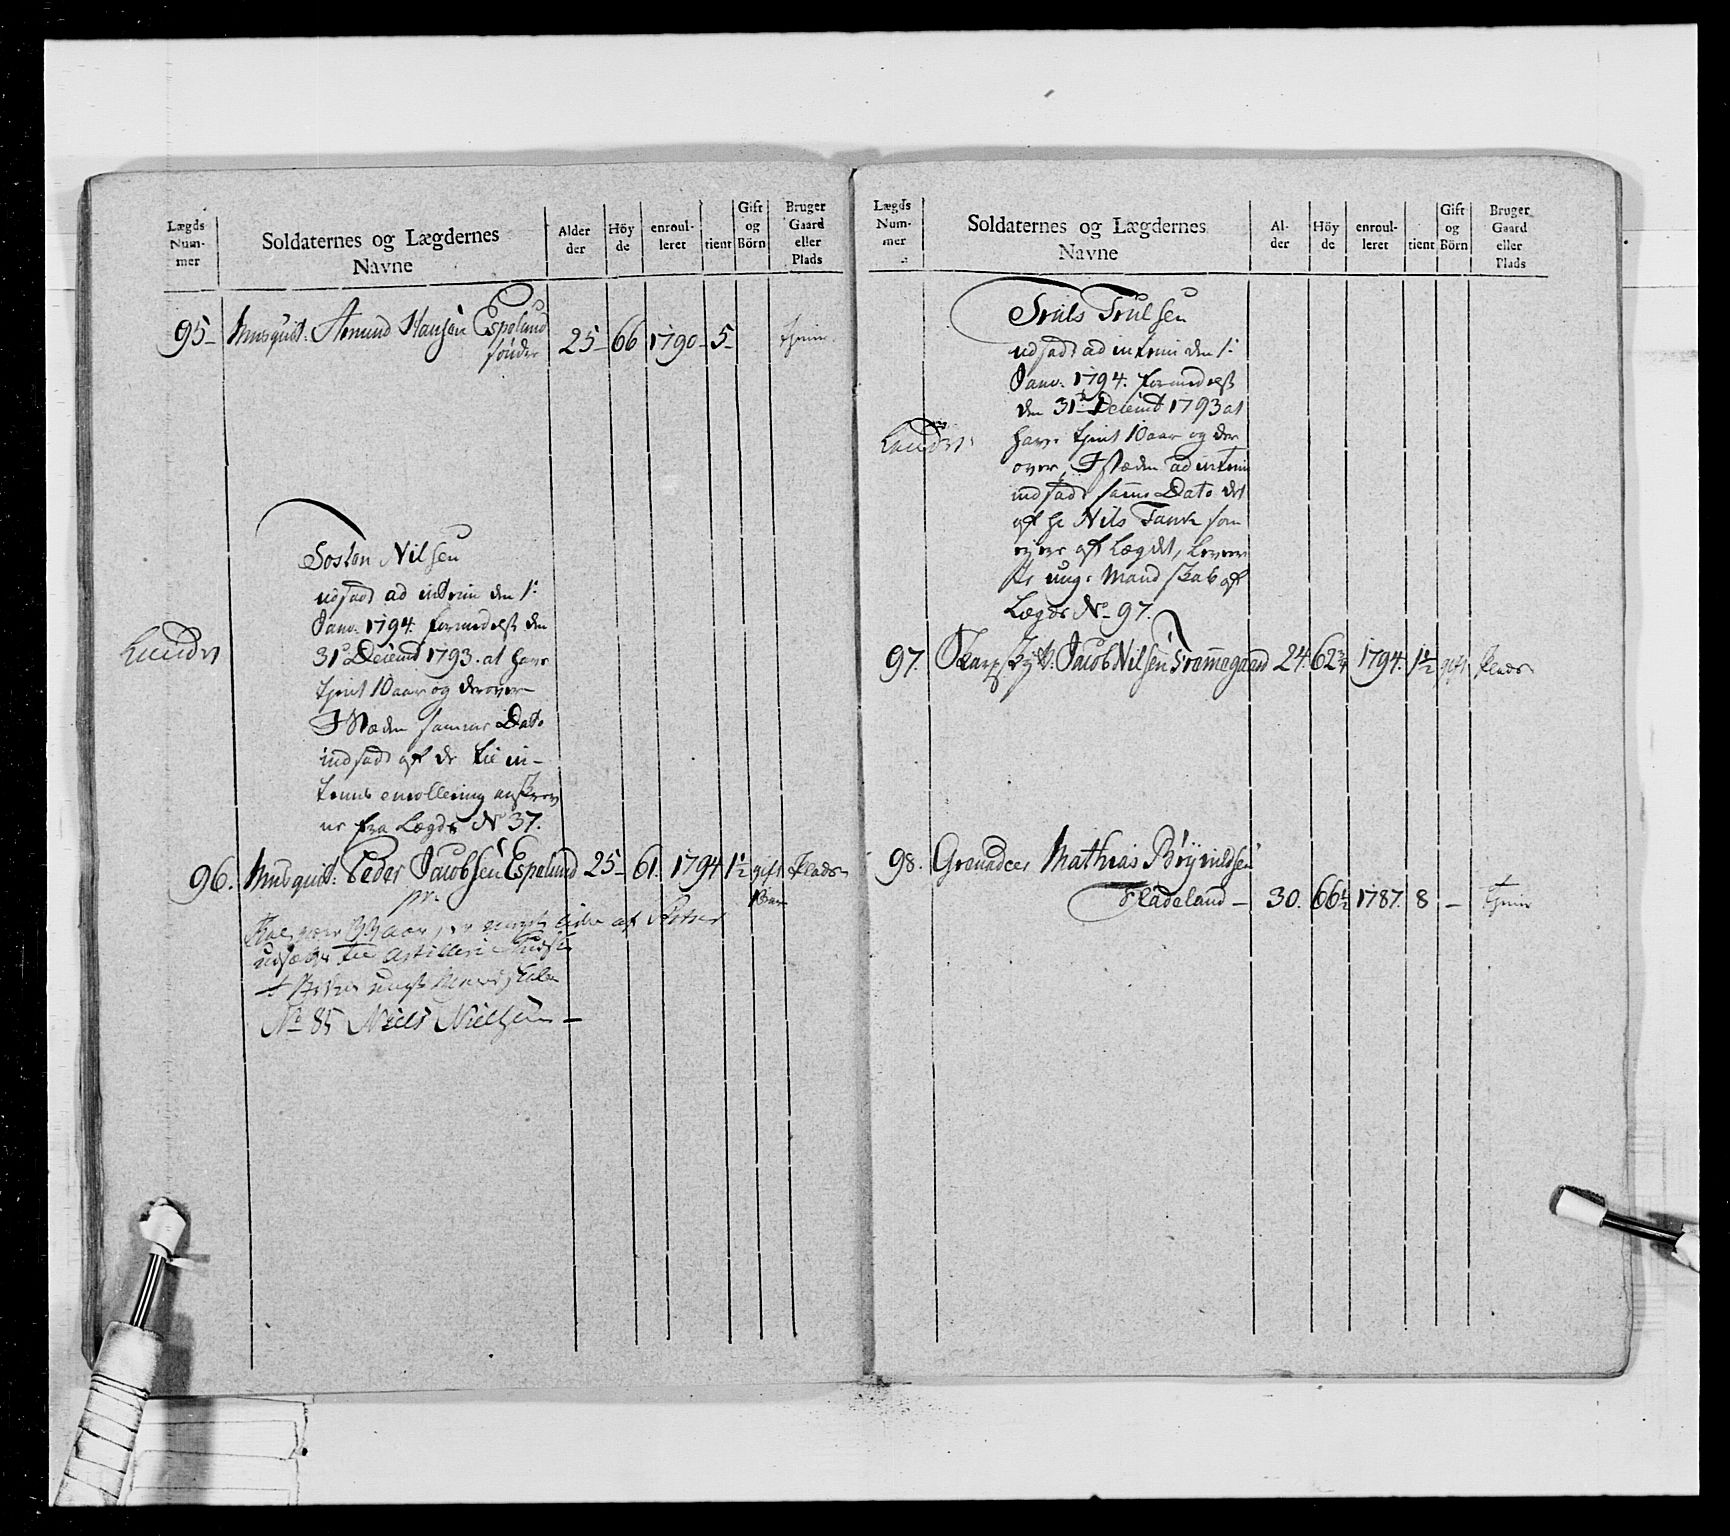 Lægds Num- mer
Soldaternes og Lægdernes Navne
Alder der
Höy de
enroul- leret
tient
Gift og Börn
Bruger Gaard eller Plads
95 Musquet: Amund Hansen Espeland 25 66 1790 5 tjener
sönder
Tosten Nilsen
udsadt ad interim den 1:
Janv. 1794. formedelst den
31 Decemb 1793. at have
tjent 10 aar og derover
I Stæden samme Dato
indsadt af de til in-
enrollering anskrev
ne fra Lægds No 37.
96. Musquet: Peder Jacobsen Espeland 25 61. 1794 1½ gift Plads
1 Barn
33 aar
udsættes til Artilleri
No 85 Niels Nielsen
Lægds Num- mer
Soldaternes og Lægdernes Navne
Al- der
Höy de
enroul- leret
tient
Gift og Börn
Bruger Gaard eller Plads
Truls Trulsen
udsadt ad interim den 1:
Janv. 1794. formedelst
den 31 Decemb 1793 at
have tjent 10 aar og der
over, I stæden ad interim
indsadt samme Dato det
af Hr Nils Tank som
ejere af Lægdet, leveer
te unge Mandskab af
Lægds No 97.
97. Skarpskytt: Jacob Nilsen Trømmegaard 24. 62¾ 1794. 1½ gift Plads
98. Grenadeer Mathias Brynildsen
Fladeland 30. 66½ 1787. 8 tjener